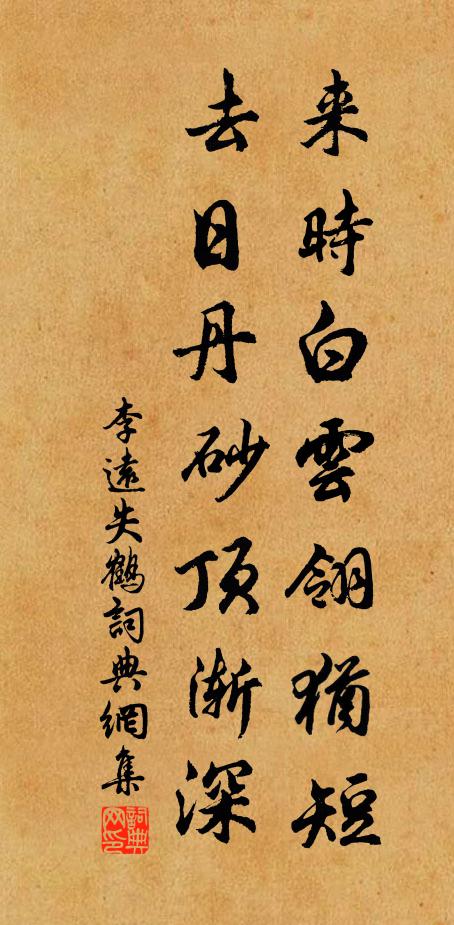 来時白雲翎猶短
去日丹砂頂渐深
李遠失鶴詞典網集
詞典網印